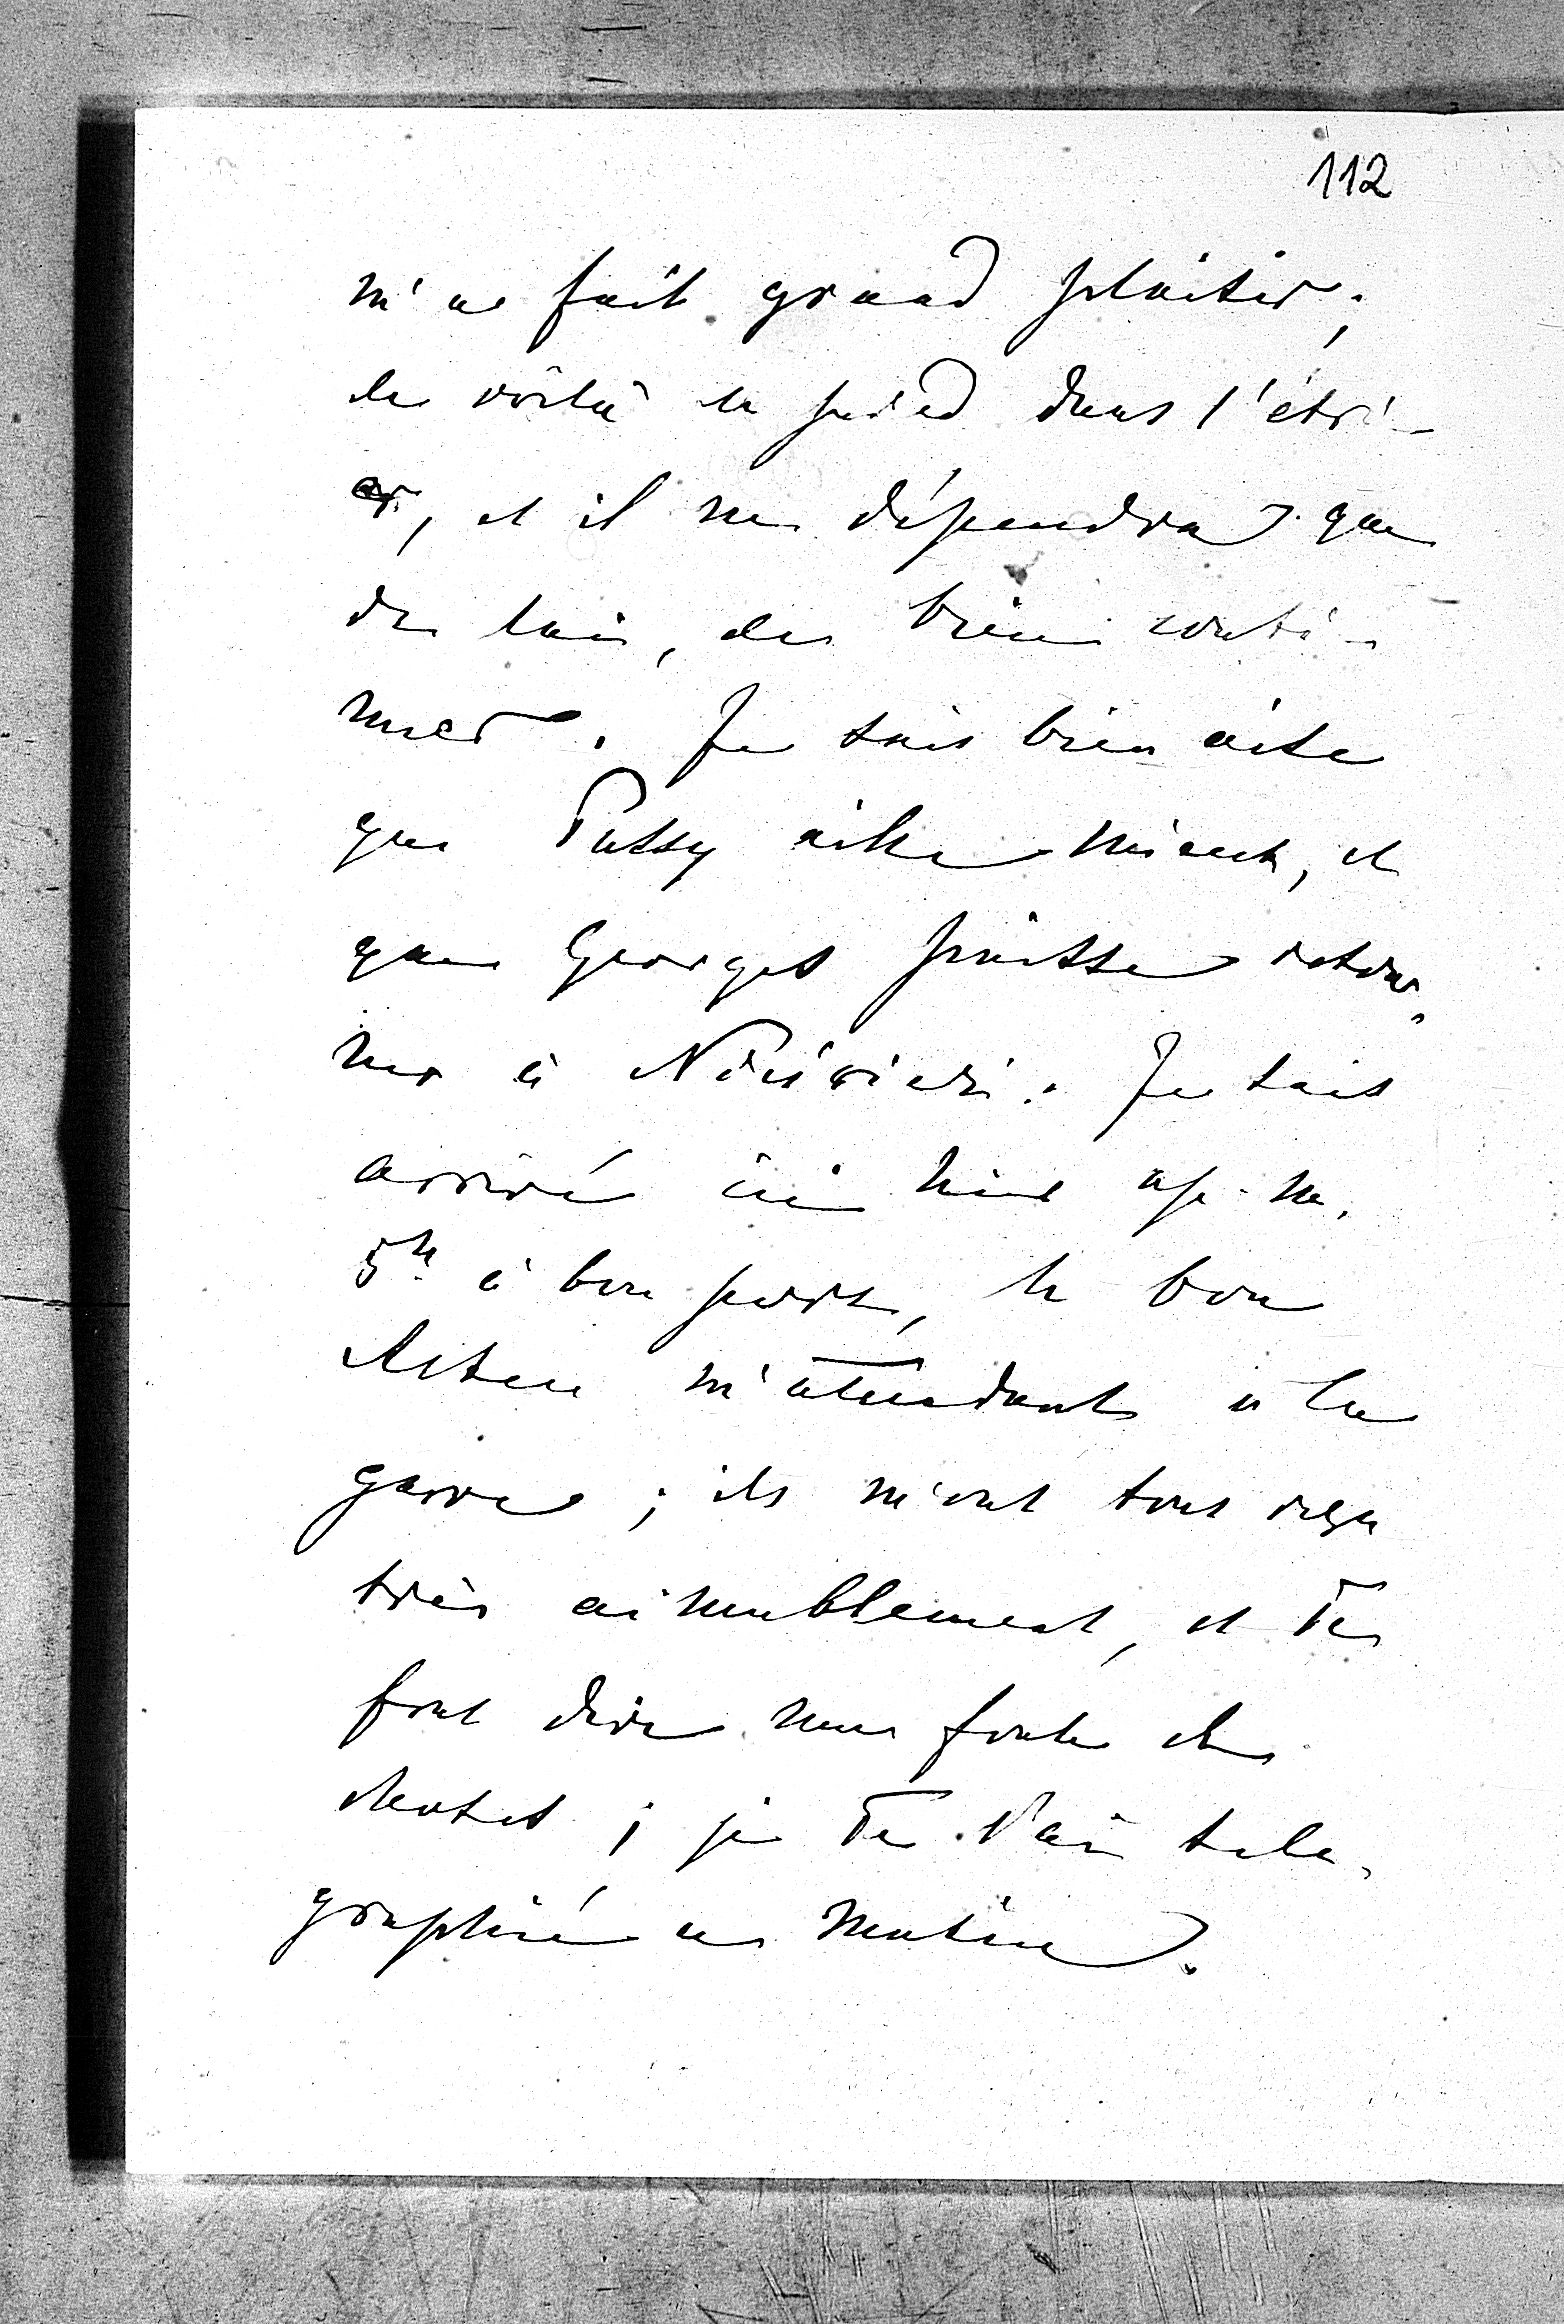 112
m'a fait grand plaisir;
le voilà le pied dans l'étri-
er, et il ne dépendra que
de lui, de bien conti-
nuer. Je suis bien aise
que Pussy aille mieux, et
que Georges puisse retour-
ner à Nieświeź. Je suis
arrivé ici hier ap. m.
5h à bon port, le bon
m'attendant à la
garre; ils m'ont tous reçu
très aimablement, et Te
font dire une foule de
choses; je Te l'ai télé-
graphié ce matin.